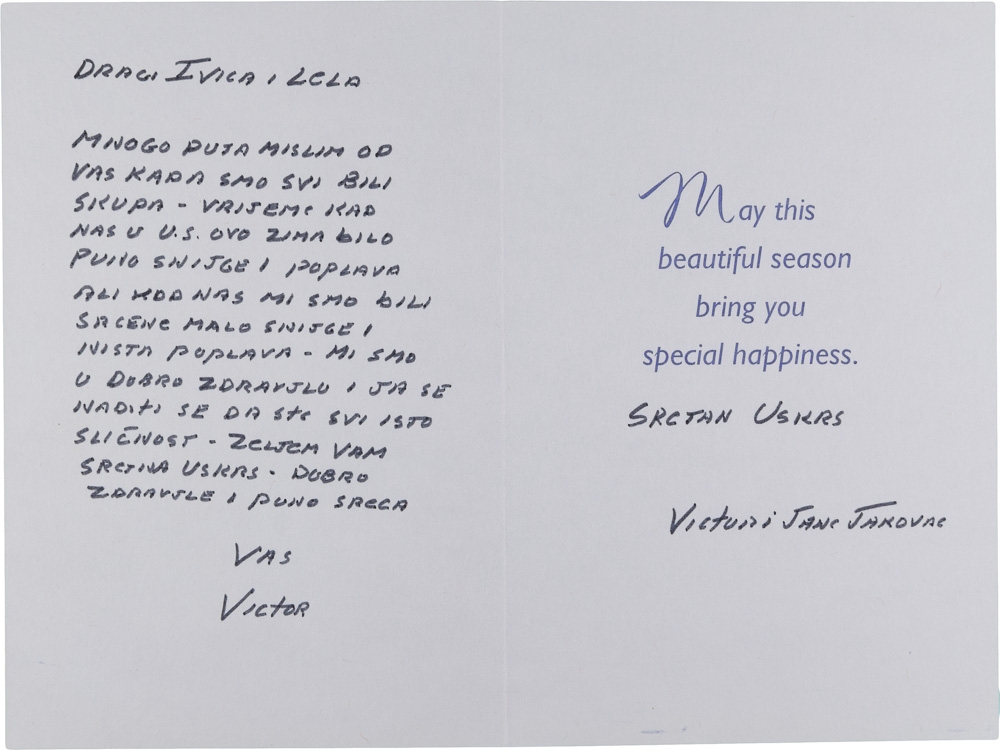 DRAGI IVICA I LELA
MNOGO PUTA MISLIM OD
VAS KADA SMO SVI BILI
SKUPA - VRIJEME KAD
NAS U U.S. OVO ZIMA BILO
PUNO SNIJGE I POPLAVA
ALI KOD NAS MI SMO BILI
SRCENE MALO SNIJGE I
NISTA POPLAVA - MI SMO
U DOBRO ZDRAVJLU I JA SE
NADITI SE DA STE SVI ISTO
SLIČNOST - ZELJEM VAM
SRETNA USKRS - DOBRO
ZDRAVJLE I PUNO SRECA
VAS
VICTOR
May this
beautiful season
bring you
special happiness.
SRETAN USKRS
VICTOR I JANE JAKOVAC